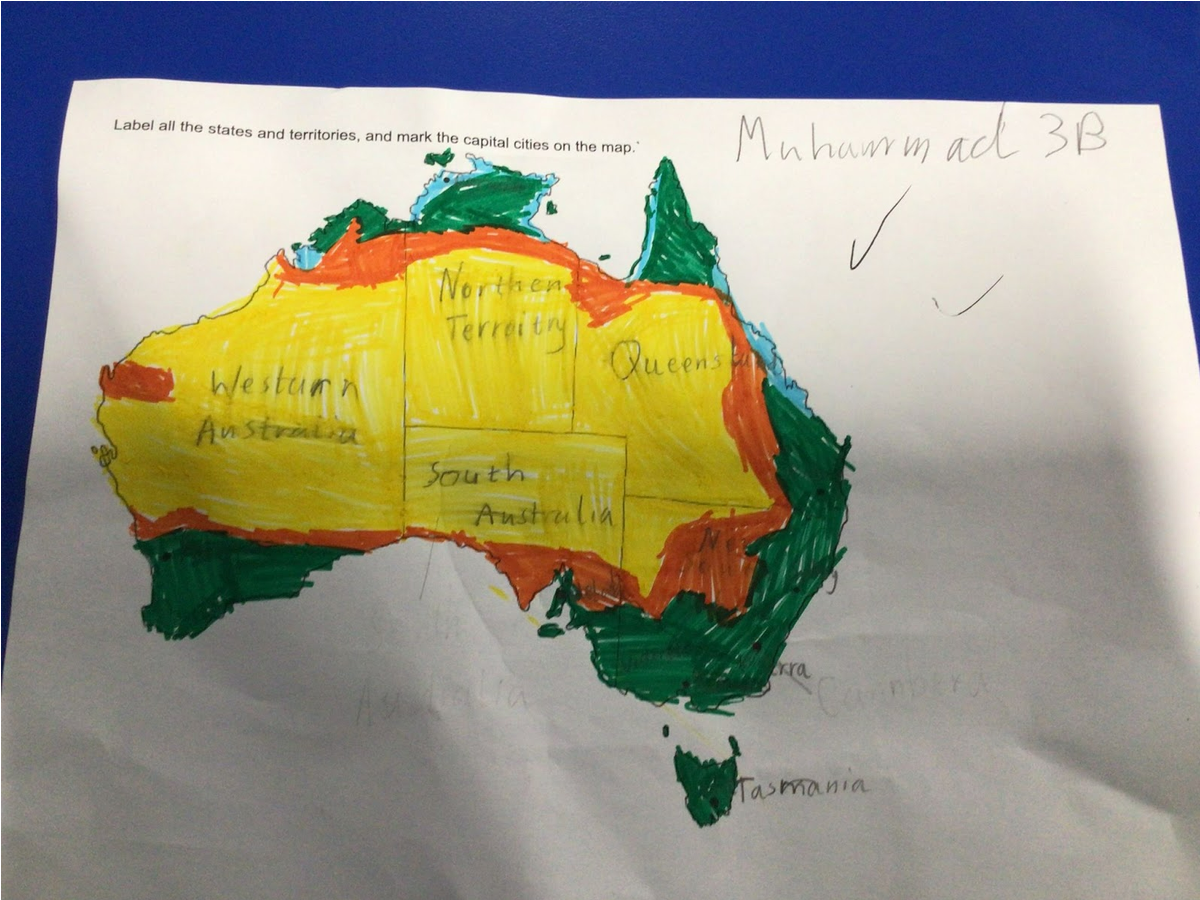 Label all the states and territories, and mark the capital cities on the map.
Muhammad 3B
Northen
Terroitry
Queensland
Westurn
Australia
South
Australia
Australia
Tasmania